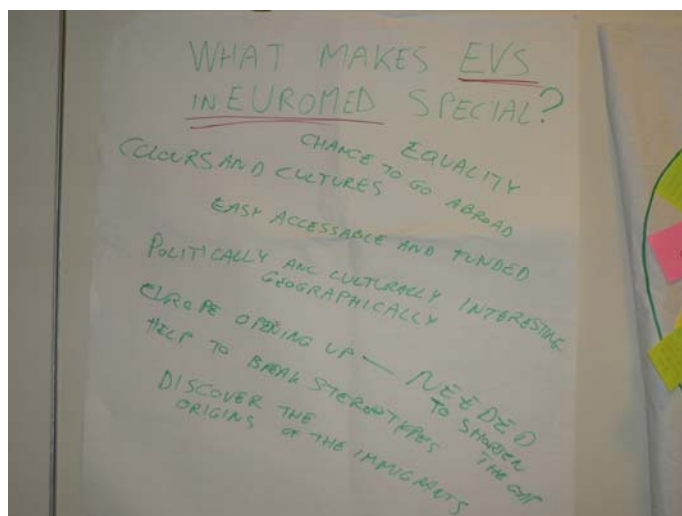 WHAT MAKES EVS
IN EUROMED SPECIAL?
EQUALITY
CHANCE TO GO ABROAD
COLOURS AND CULTURES
EASY ACCESSABLE AND FUNDED
POLITICALLY AND CULTURALLY INTERESTING
GEOGRAPHICALLY
EUROPE OPENING UP — NEEDED
TO SHORTEN
THE GAP
HELP TO BREAK STEREOTYPES
DISCOVER THE
ORIGINS OF THE IMMIGRANTS